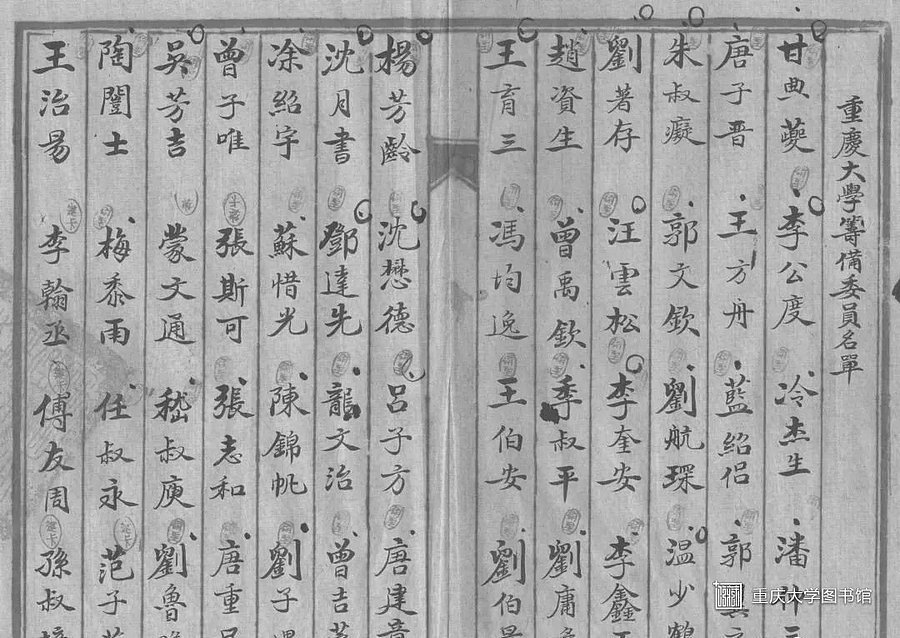 重慶大學籌備委員名單
甘典夔 李公度 冷杰生 潘
唐子晋 王方舟 藍紹侶 郭
朱叔癡 郭文欽 劉航琛 温少鶴
劉著存 汪雲松 李奎安 李鑫
趙資生 曾禹欽 季叔平 劉庸
王育三 馮均逸 王伯安 劉伯
楊芳齡 沈懋德 呂子方 唐建章
沈月書 鄧達先 龍文治 曾吉
凃紹宇 蘇惜光 陳錦帆 劉子
曾子唯 張斯可 張志和 唐重
吳芳吉 蒙文通 嵇叔庚 劉魯
陶闓士 梅黍雨 任叔永 范子
王治易 李翰丞 傅友周 孫叔
重庆大学图书馆